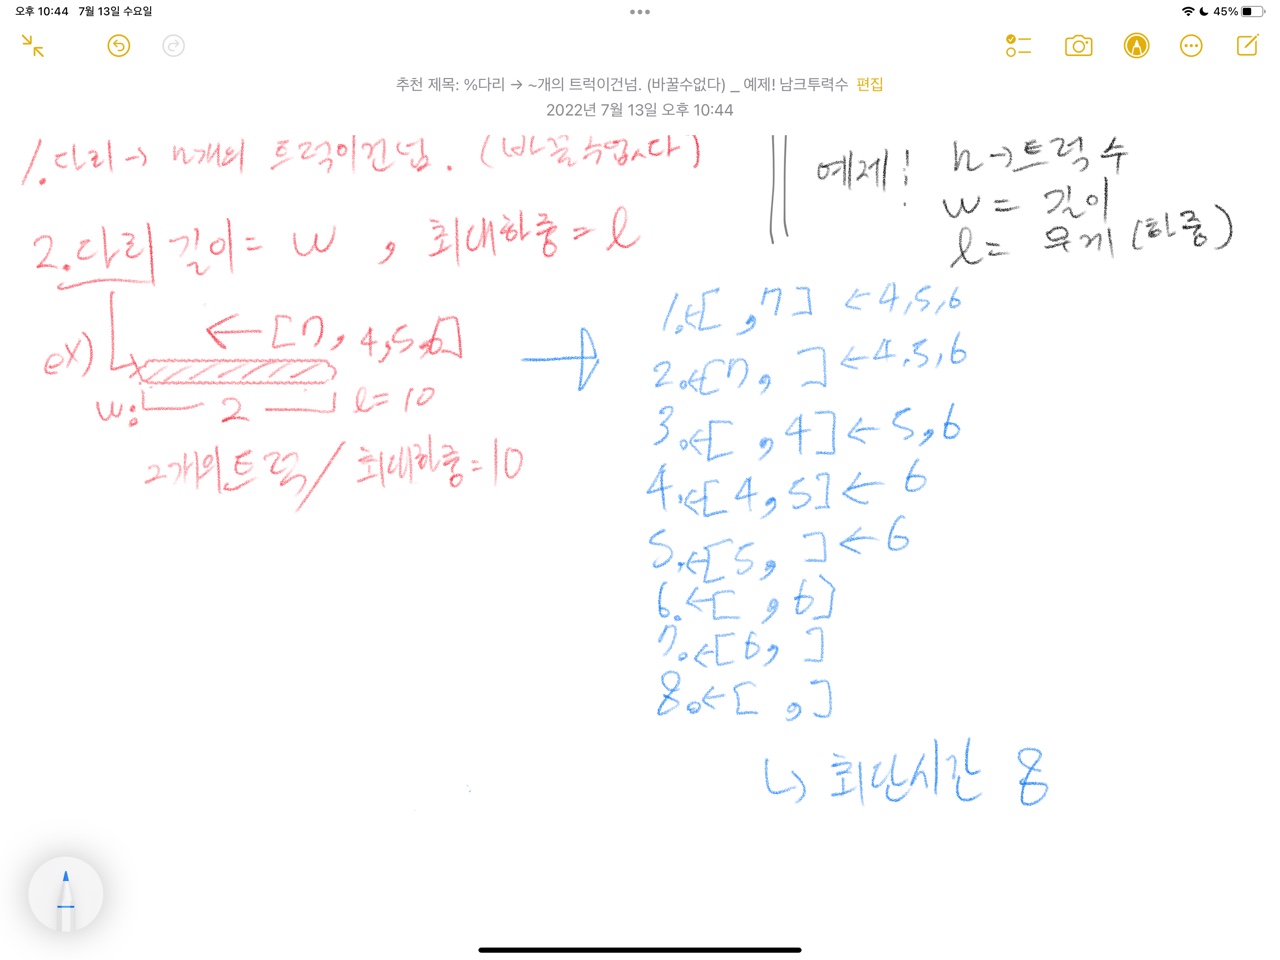 오후 10:44 7월 13일 수요일
45%
추천 제목: %다리 → ~개의 트럭이건넘. (바꿀수없다) _ 예제! 남크투력수 편집
2022년 7월 13일 오후 10:44
1. 다리 → n개의 트럭이건넘. (바꿀수없다)
2. 다리 길이 = w , 최대하중 = l
ex)
← [7, 4,5,6]
w: 2 l = 10
2개의 트럭 / 최대하중 = 10
예제! n → 트럭 수
w = 길이
l = 무게 (하중)
1. ←[ ,7] ← 4,5,6
2. ←[7, ] ← 4,5,6
3. ←[ ,4] ← 5,6
4. ←[4,5] ← 6
5. ←[5, ] ← 6
6. ←[ ,6]
7. ←[6, ]
8. ←[ , ]
↳ 최단시간 8